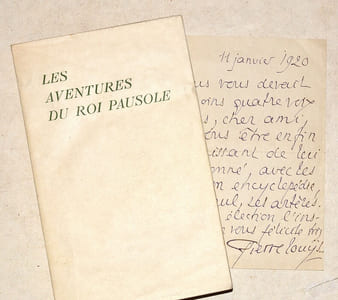 LES
AVENTURES
DU ROI PAUSOLE
11 janvier 1920
us vous devait
oins quatre voix
s, cher ami,
ous être enfin
issant de lui
onné, avec les
on encyclopédie,
ul, ses artères.
élection l'ins-
vous félicite
Pierre Louÿs